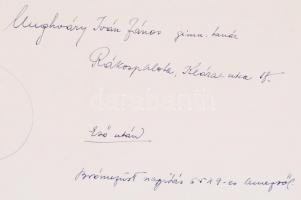 Munghváry Iván János gimn. tanár
Rákospalota, Klára utca 17.
Eső után
Brómezüst nagyítás 6x9-es lemezről.
darabanth